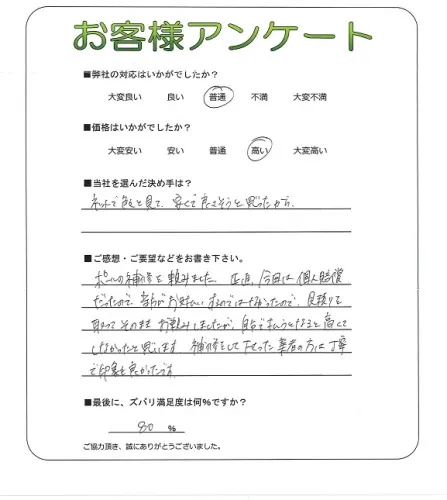 お客様アンケート
■弊社の対応はいかがでしたか？
大変良い 良い 普通 不満 大変不満
■価格はいかがでしたか？
大変安い 安い 普通 高い 大変高い
■当社を選んだ決め手は？
ネットで 見て、安くて良さそうと思ったから。
■ご感想・ご要望などをお書き下さい。
ポールの補修を頼みました。正直、今回は個人賠償
だったので、自分がお支払いするのではなかったので、見積りを
取ってそのままお頼みしましたが、自分で払うとなると高くて
しなかったと思います 補修をして下さった業者の方は丁寧
で印象も良かったです。
■最後に、ズバリ満足度は何％ですか？
80 ％
ご協力頂き、誠にありがとうございました。